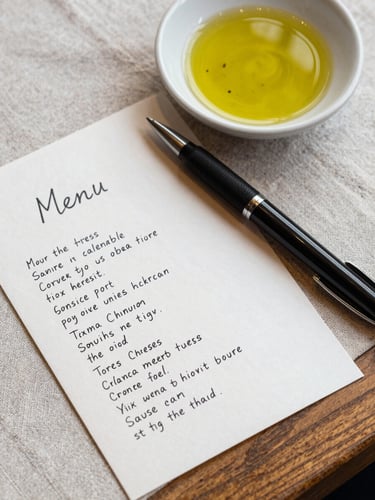 Menu
Mour the tress
Sanire n calenable
Corvek tjo us obea tiore
tiox heresit.
Sonsice port
poy oive unies hckrcan
Txma Chnuion
Snuihs ne tigv.
the oiod
Tores Chieses
Crlanca meerb tuess
Cronre foel.
Yiix wena b hiovit boure
Sause cam
st tig the thaid.